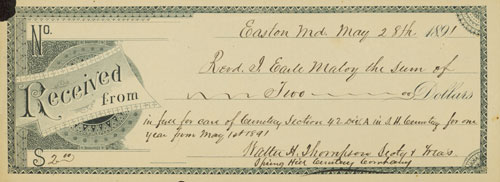 No.
Easton Md. May 28th 1891
Received from
Recd. J. Earle Maloy the sum of
Two Dollars
in full for care of Cemetery Section 42 Div. A in S. H. Cemetery for one
year from May 1st 1891
$ 2.00
Walter H. Thompson Secty & Treas.
Spring Hill Cemetery Company